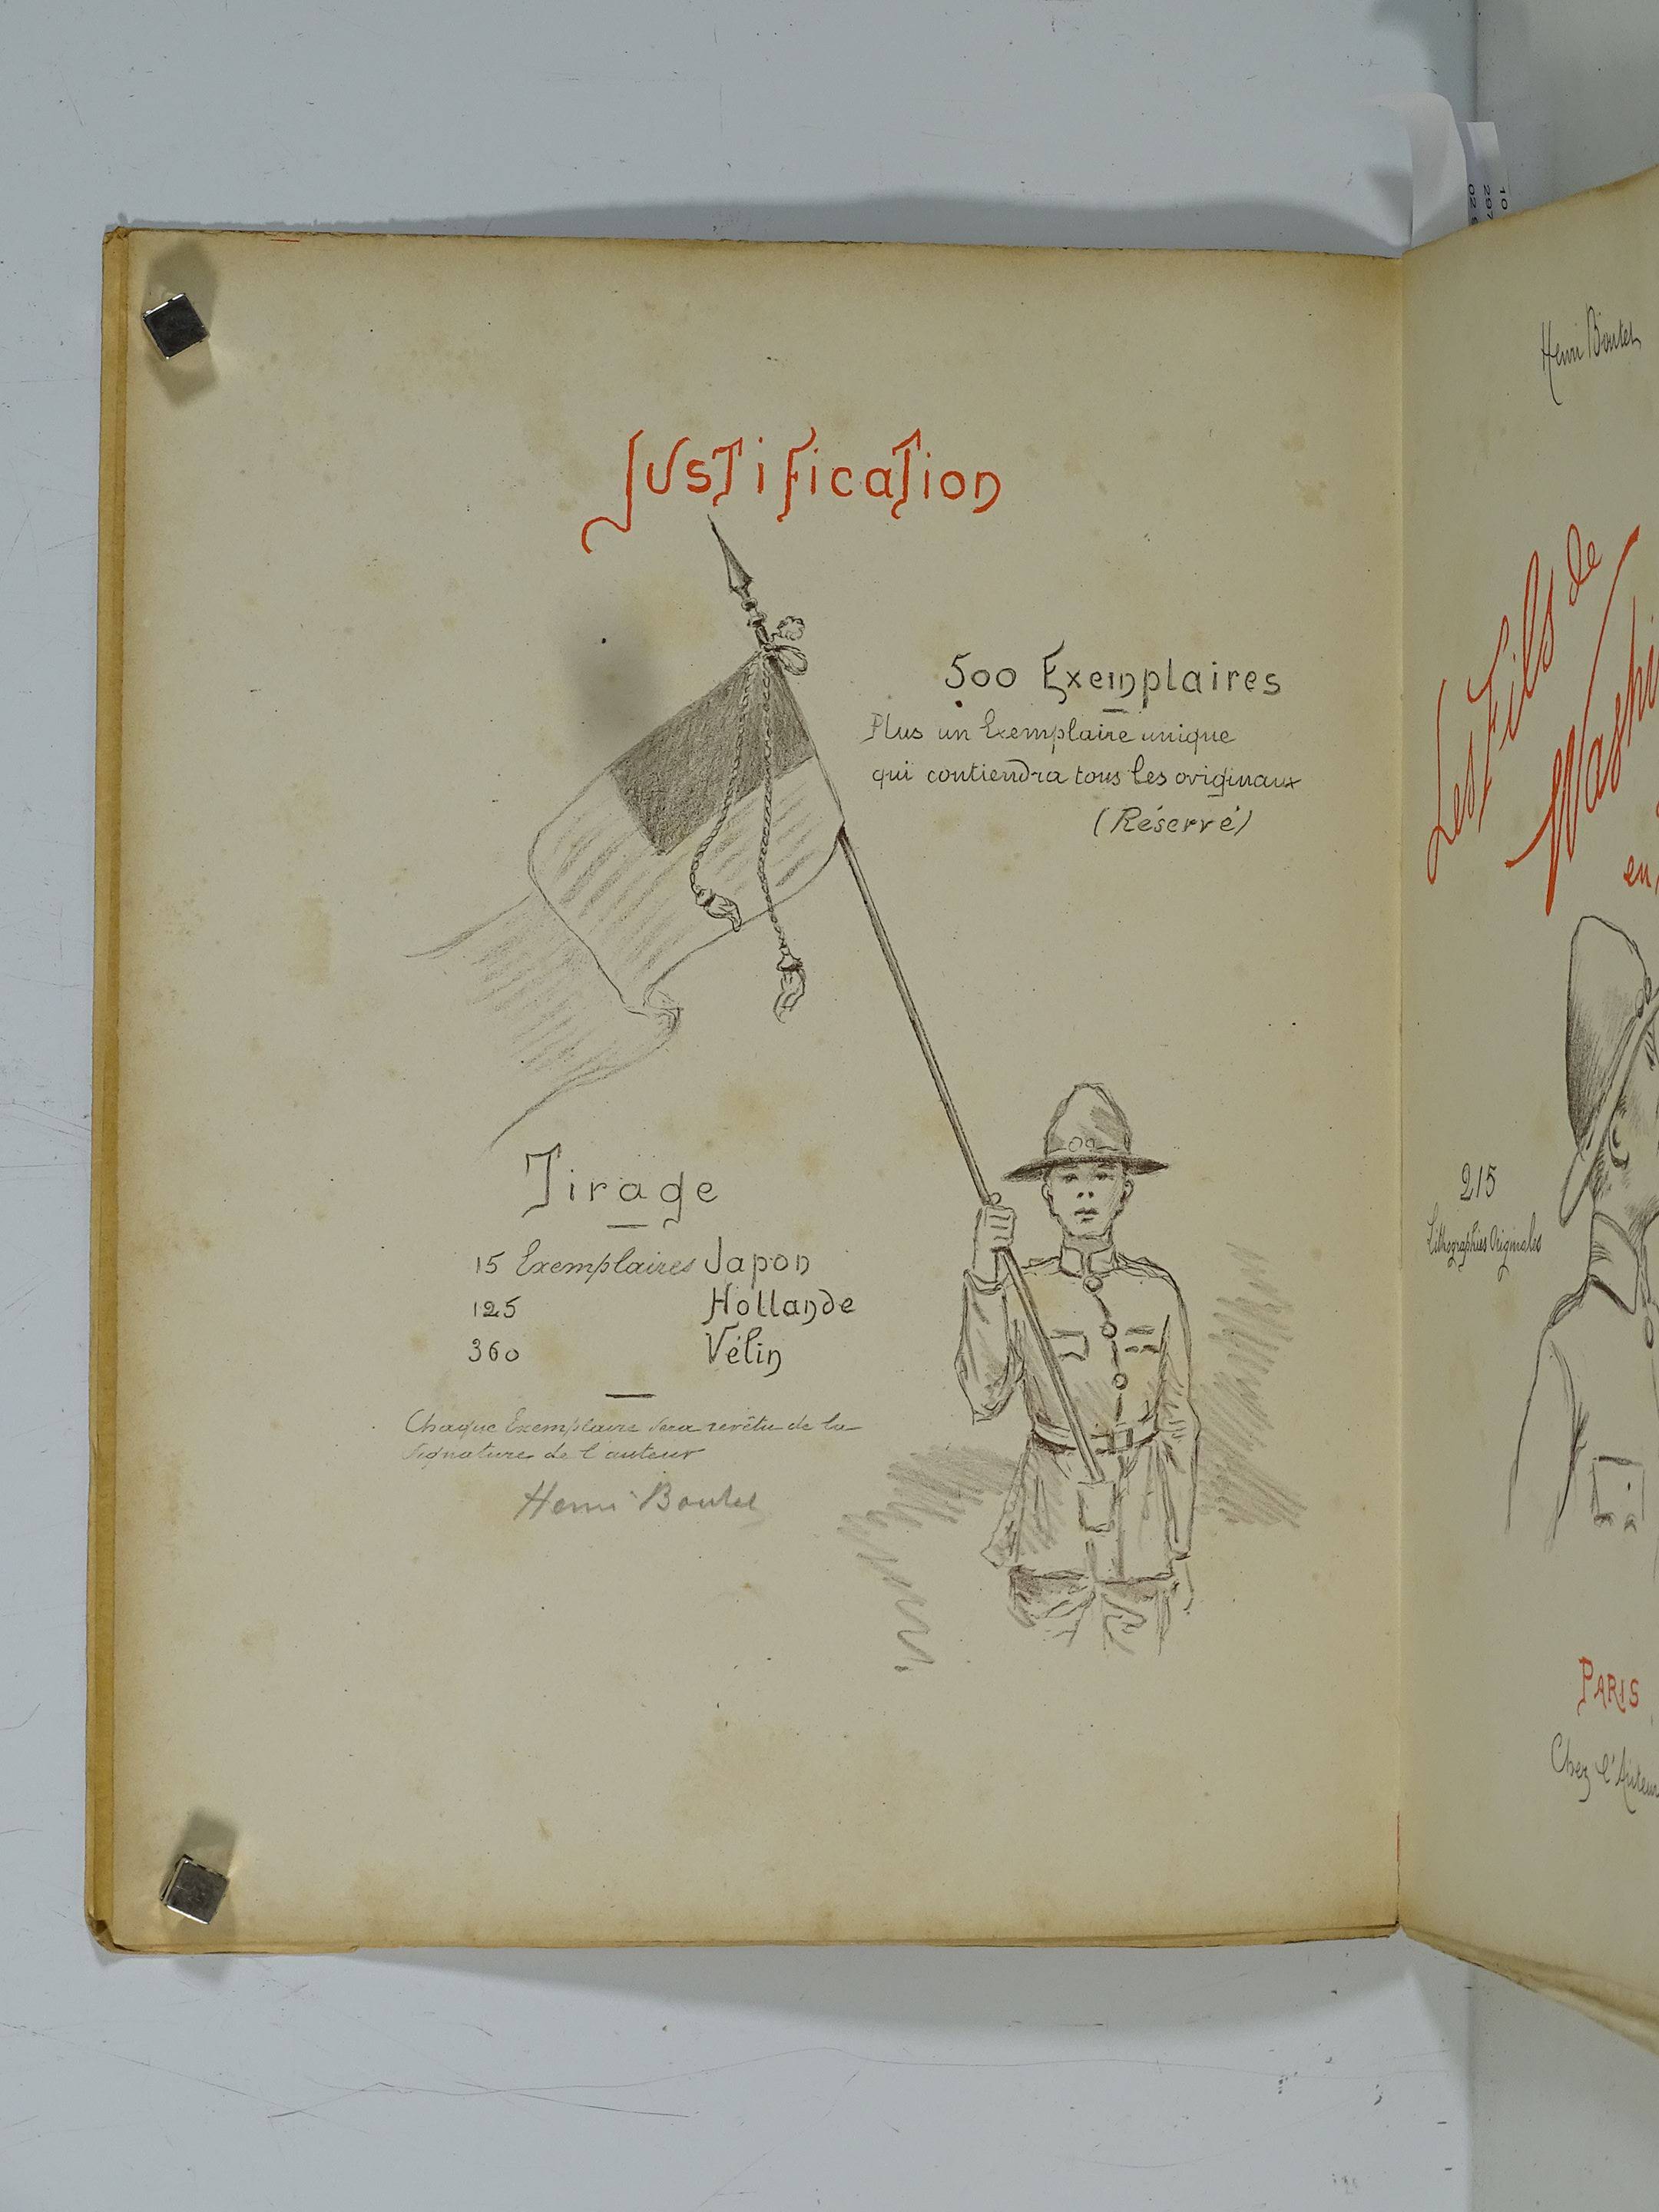 Justification
500 Exemplaires
Plus un Exemplaire unique
qui contiendra tous les originaux
(Réservé)
Tirage
15 Exemplaires Japon
125 Hollande
360 Vélin
Chaque Exemplaire sera revêtu de la
signature de l'auteur
Henri Boutet
Henri Boutet
Les Fils de
en
215
Lithographies Originales
PARIS
Chez l'Auteur
10
297
02